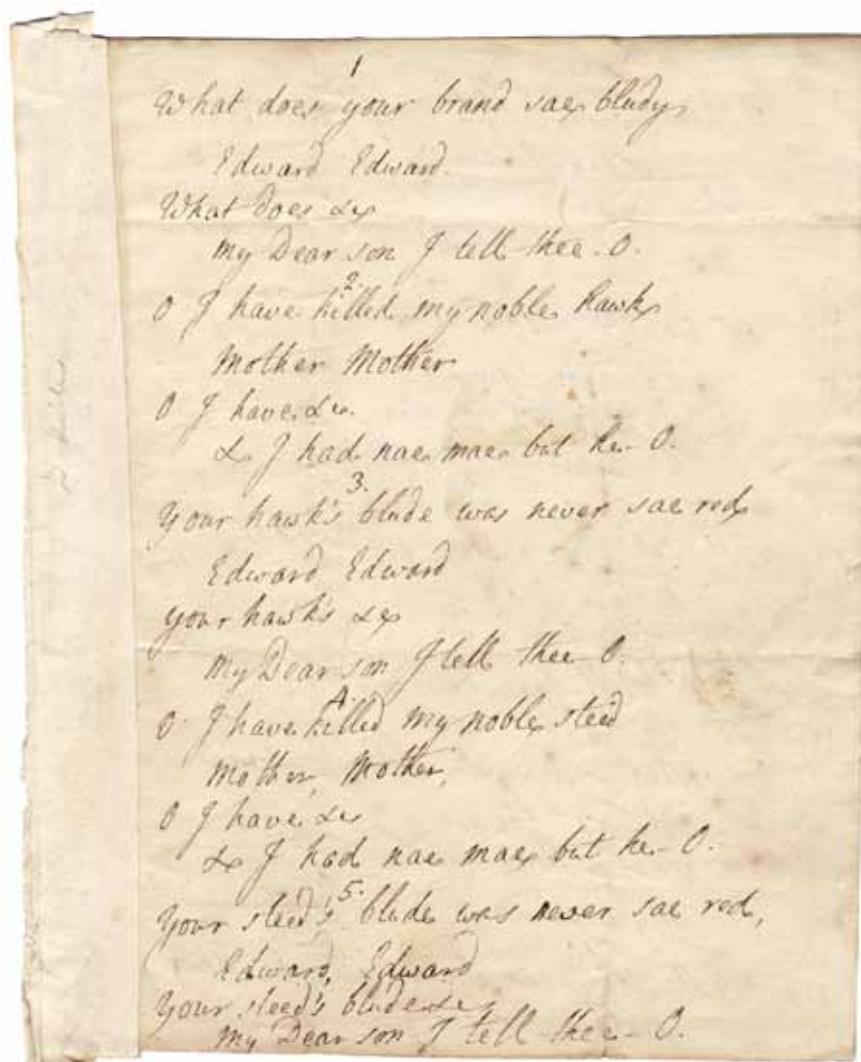 1
What does your brand sae bludy
Edward Edward.
What does &c
my Dear son I tell thee - O.
2.
O I have killed my noble hawk
Mother Mother
O I have &c.
& I had nae mae but he - O.
3.
Your hawk's blude was never sae red
Edward Edward
Your hawk's &c
My Dear son I tell thee - O.
4.
O I have killed my noble steed
Mother, Mother,
O I have &c
& I had nae mae but he - O.
5.
Your steed's blude was never sae red,
Edward, Edward
Your steed's blude &c
My Dear son I tell thee - O.